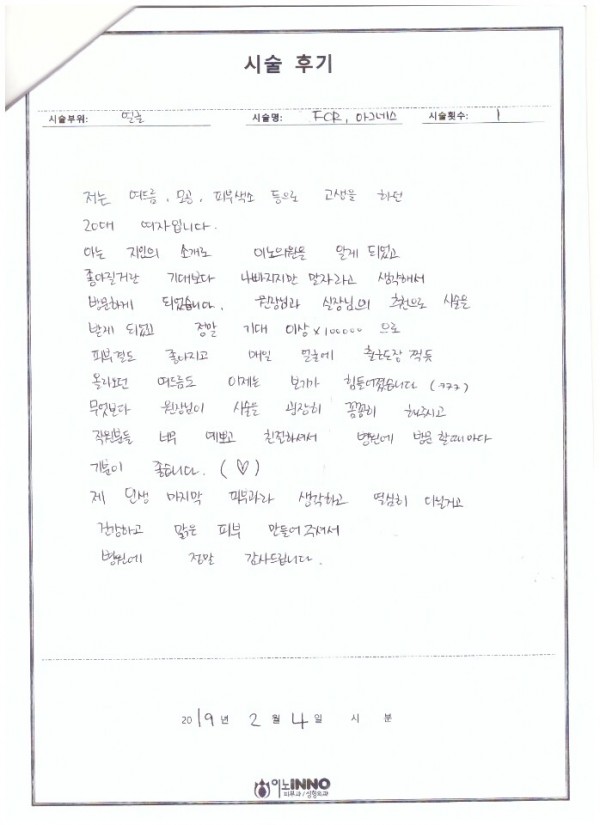 시술 후기
시술부위: 얼굴 시술명: FCR, 아그네스 시술횟수: 1
저는 여드름, 모공, 피부색소 등으로 고생을 하던
20대 여자입니다.
아는 지인의 소개로 이노의원을 알게 되었고
좋아질거란 기대보다 나빠지지만 말자라고 생각해서
방문하게 되었습니다. 원장님과 실장님의 추천으로 시술을
받게 되었고 정말 기대 이상 x 100000 으로
피부결도 좋아지고 매일 얼굴에 출근도장 찍듯
올라오던 여드름도 이제는 보기가 힘들어졌습니다 (ㅋㅋㅋ)
무엇보다 원장님이 시술을 굉장히 꼼꼼히 해주시고
직원분들 너무 예쁘고 친절하셔서 병원에 방문 할때마다
기분이 좋습니다. (♡)
제 인생 마지막 피부과라 생각하고 열심히 다닐거고
건강하고 맑은 피부 만들어 주셔서
병원에 정말 감사드립니다.
2019년 2월 4일 시 분
이노INNO
피부과/성형외과